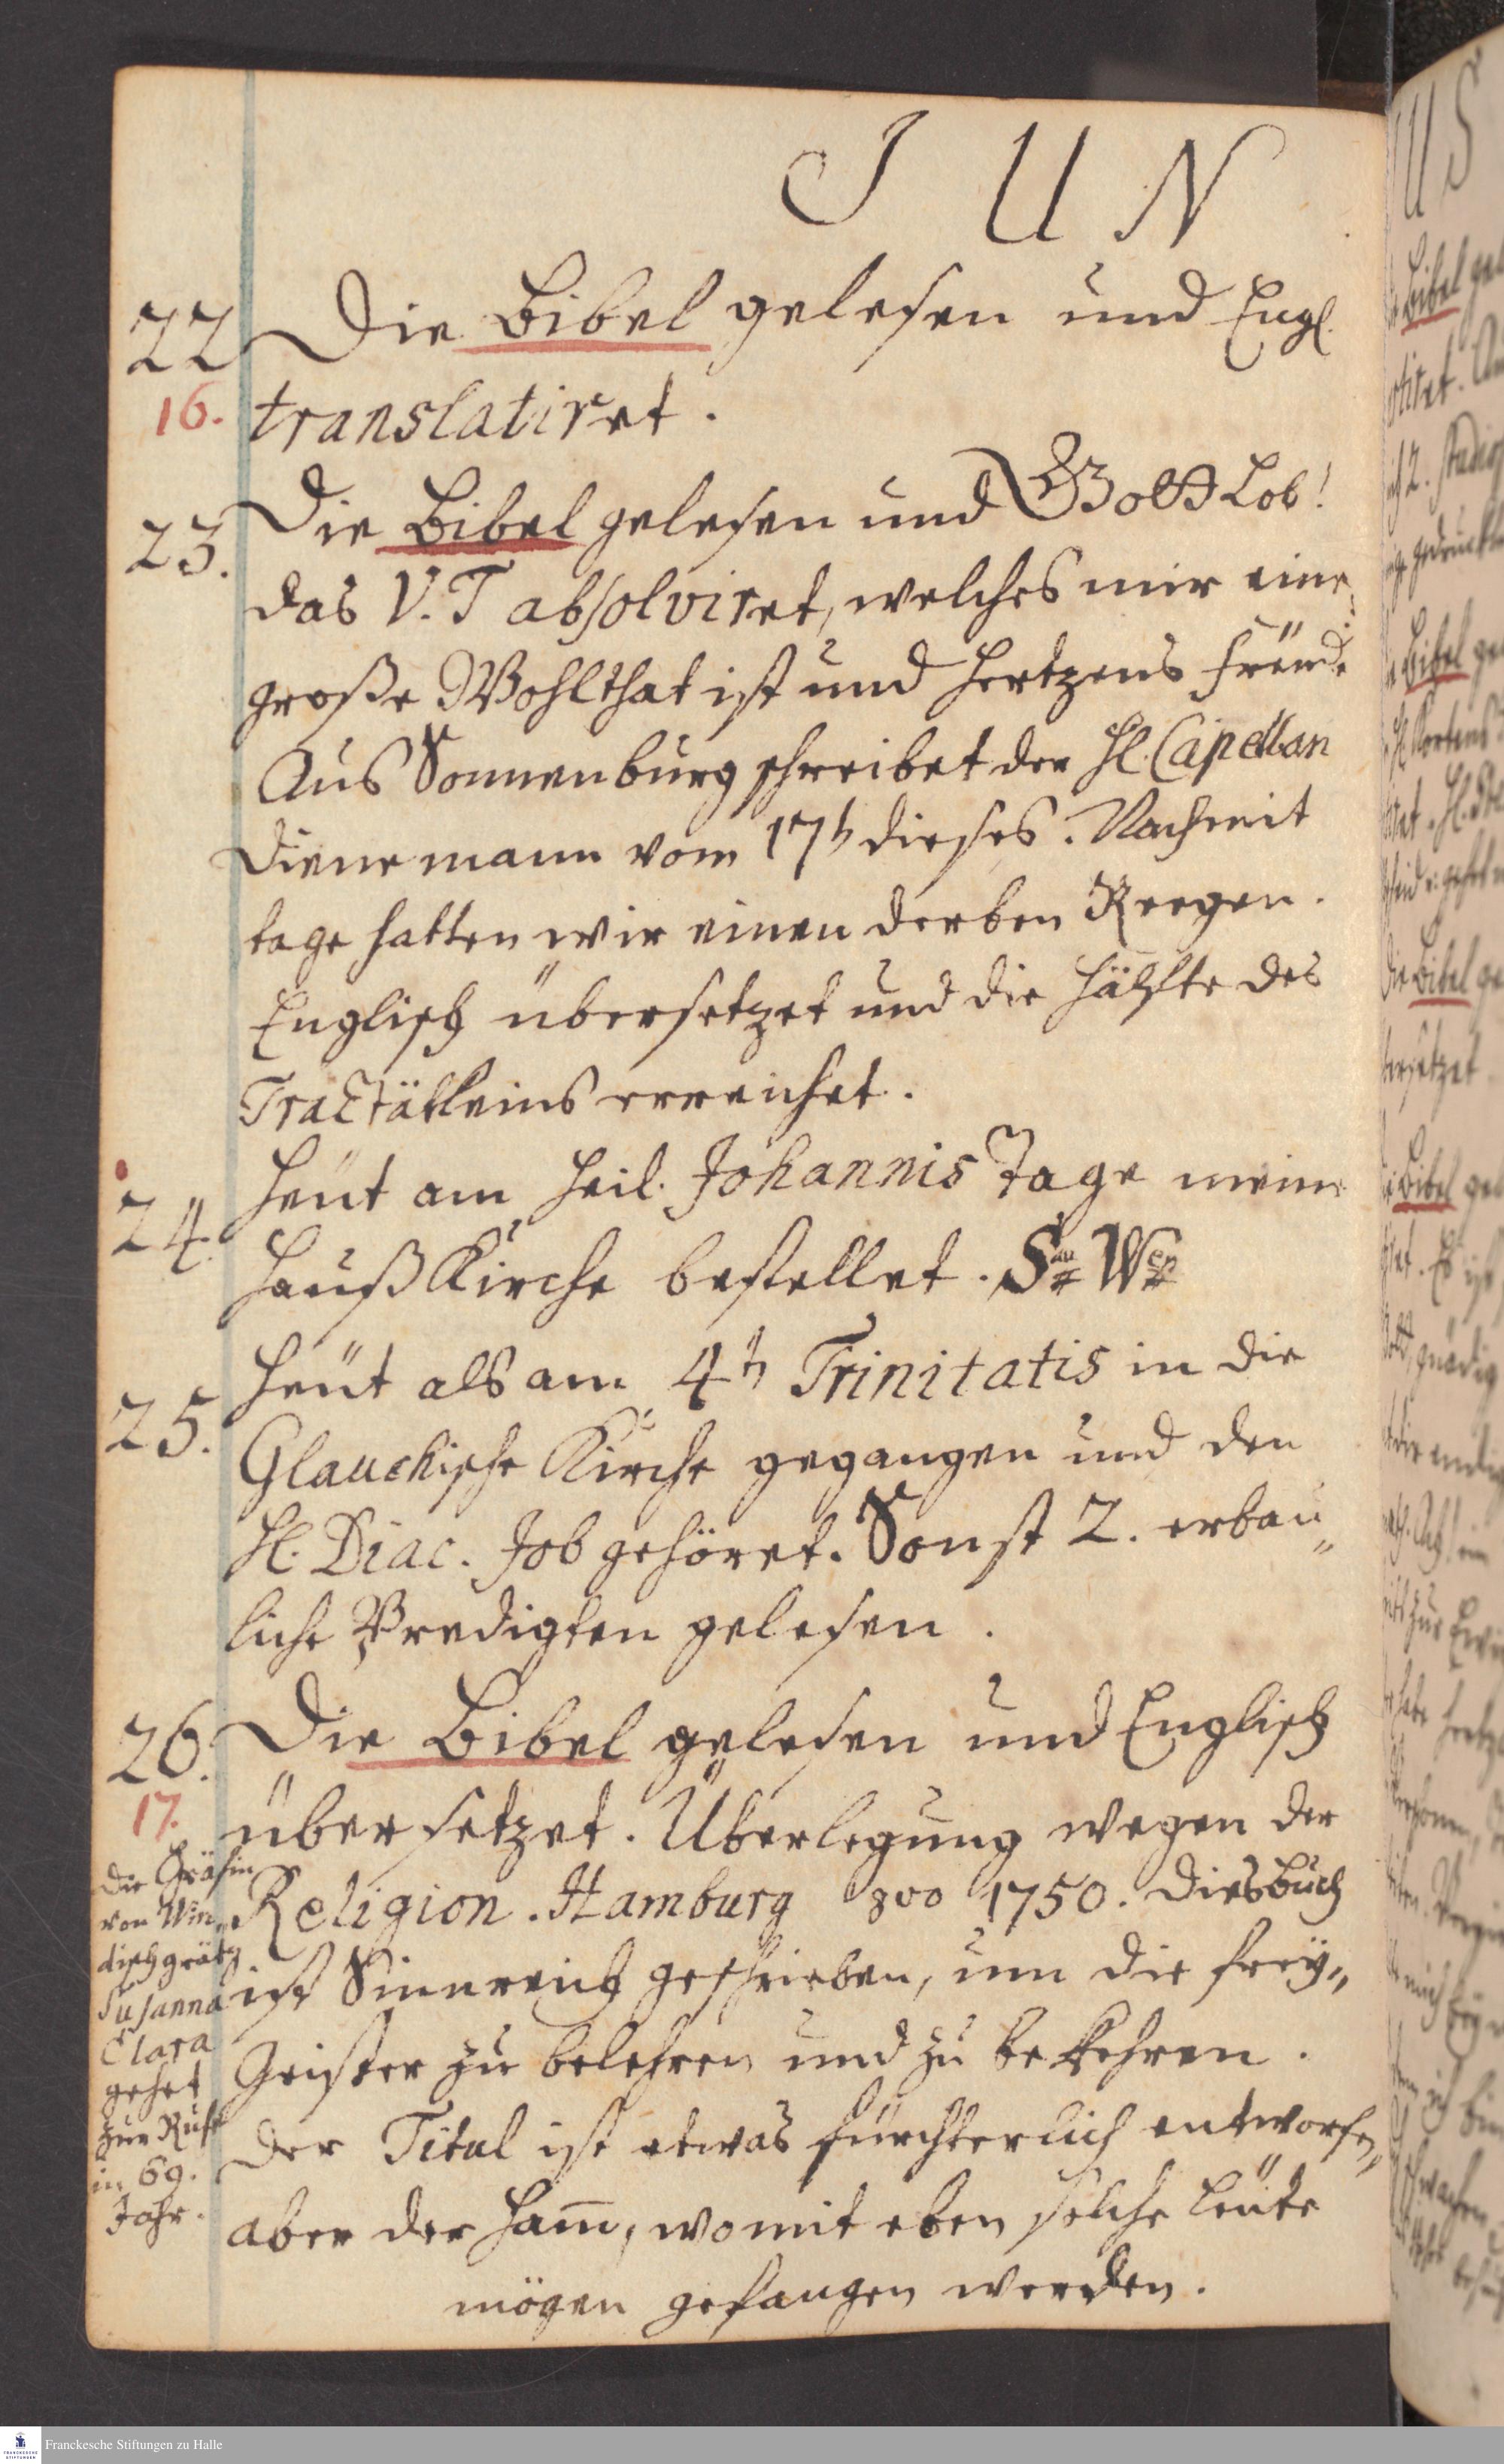 J U N
22 Die Bibel gelesen und Engl.
16. translatiret.
23. Die Bibel gelesen und Gott Lob!
das V. T absolviret, welches mir eine
große Wohlthat ist und Hertzens Freude
Aus Sonnenburg schreibet der H. Capellan
Dienemann vom 17t dieses. Nachmit
tage hatten wir einen derben Reegen.
Englisch übersetzet und die Hälfte des
Tractätleins erreichet.
24. Heut am Heil. Johannis Tage meine
HaußKirche bestellet.
25. Heut als am 4t Trinitatis in die
Glauchische Kirche gegangen und den
H. Diac. Job gehöret. Sonst 2. erbau„
liche Predigten gelesen.
26. Die Bibel gelesen und Englisch
17. übersetzet. Überlegung wegen der
Religion. Hamburg 8vo 1750. Dies Buch
ist Sinnreich geschrieben, um die Frey„
Geister zu belehren und zu bekehren.
Der Titul ist etwas fürchterlich entworfen,
aber der Ham, womit eben solche Leute
mögen gefangen werden.
die Gräfin
von Win„
dischgrätz
Susanna
Clara
gehet
zur Ruhe
in 69.
Jahr.
Franckesche Stiftungen zu Halle